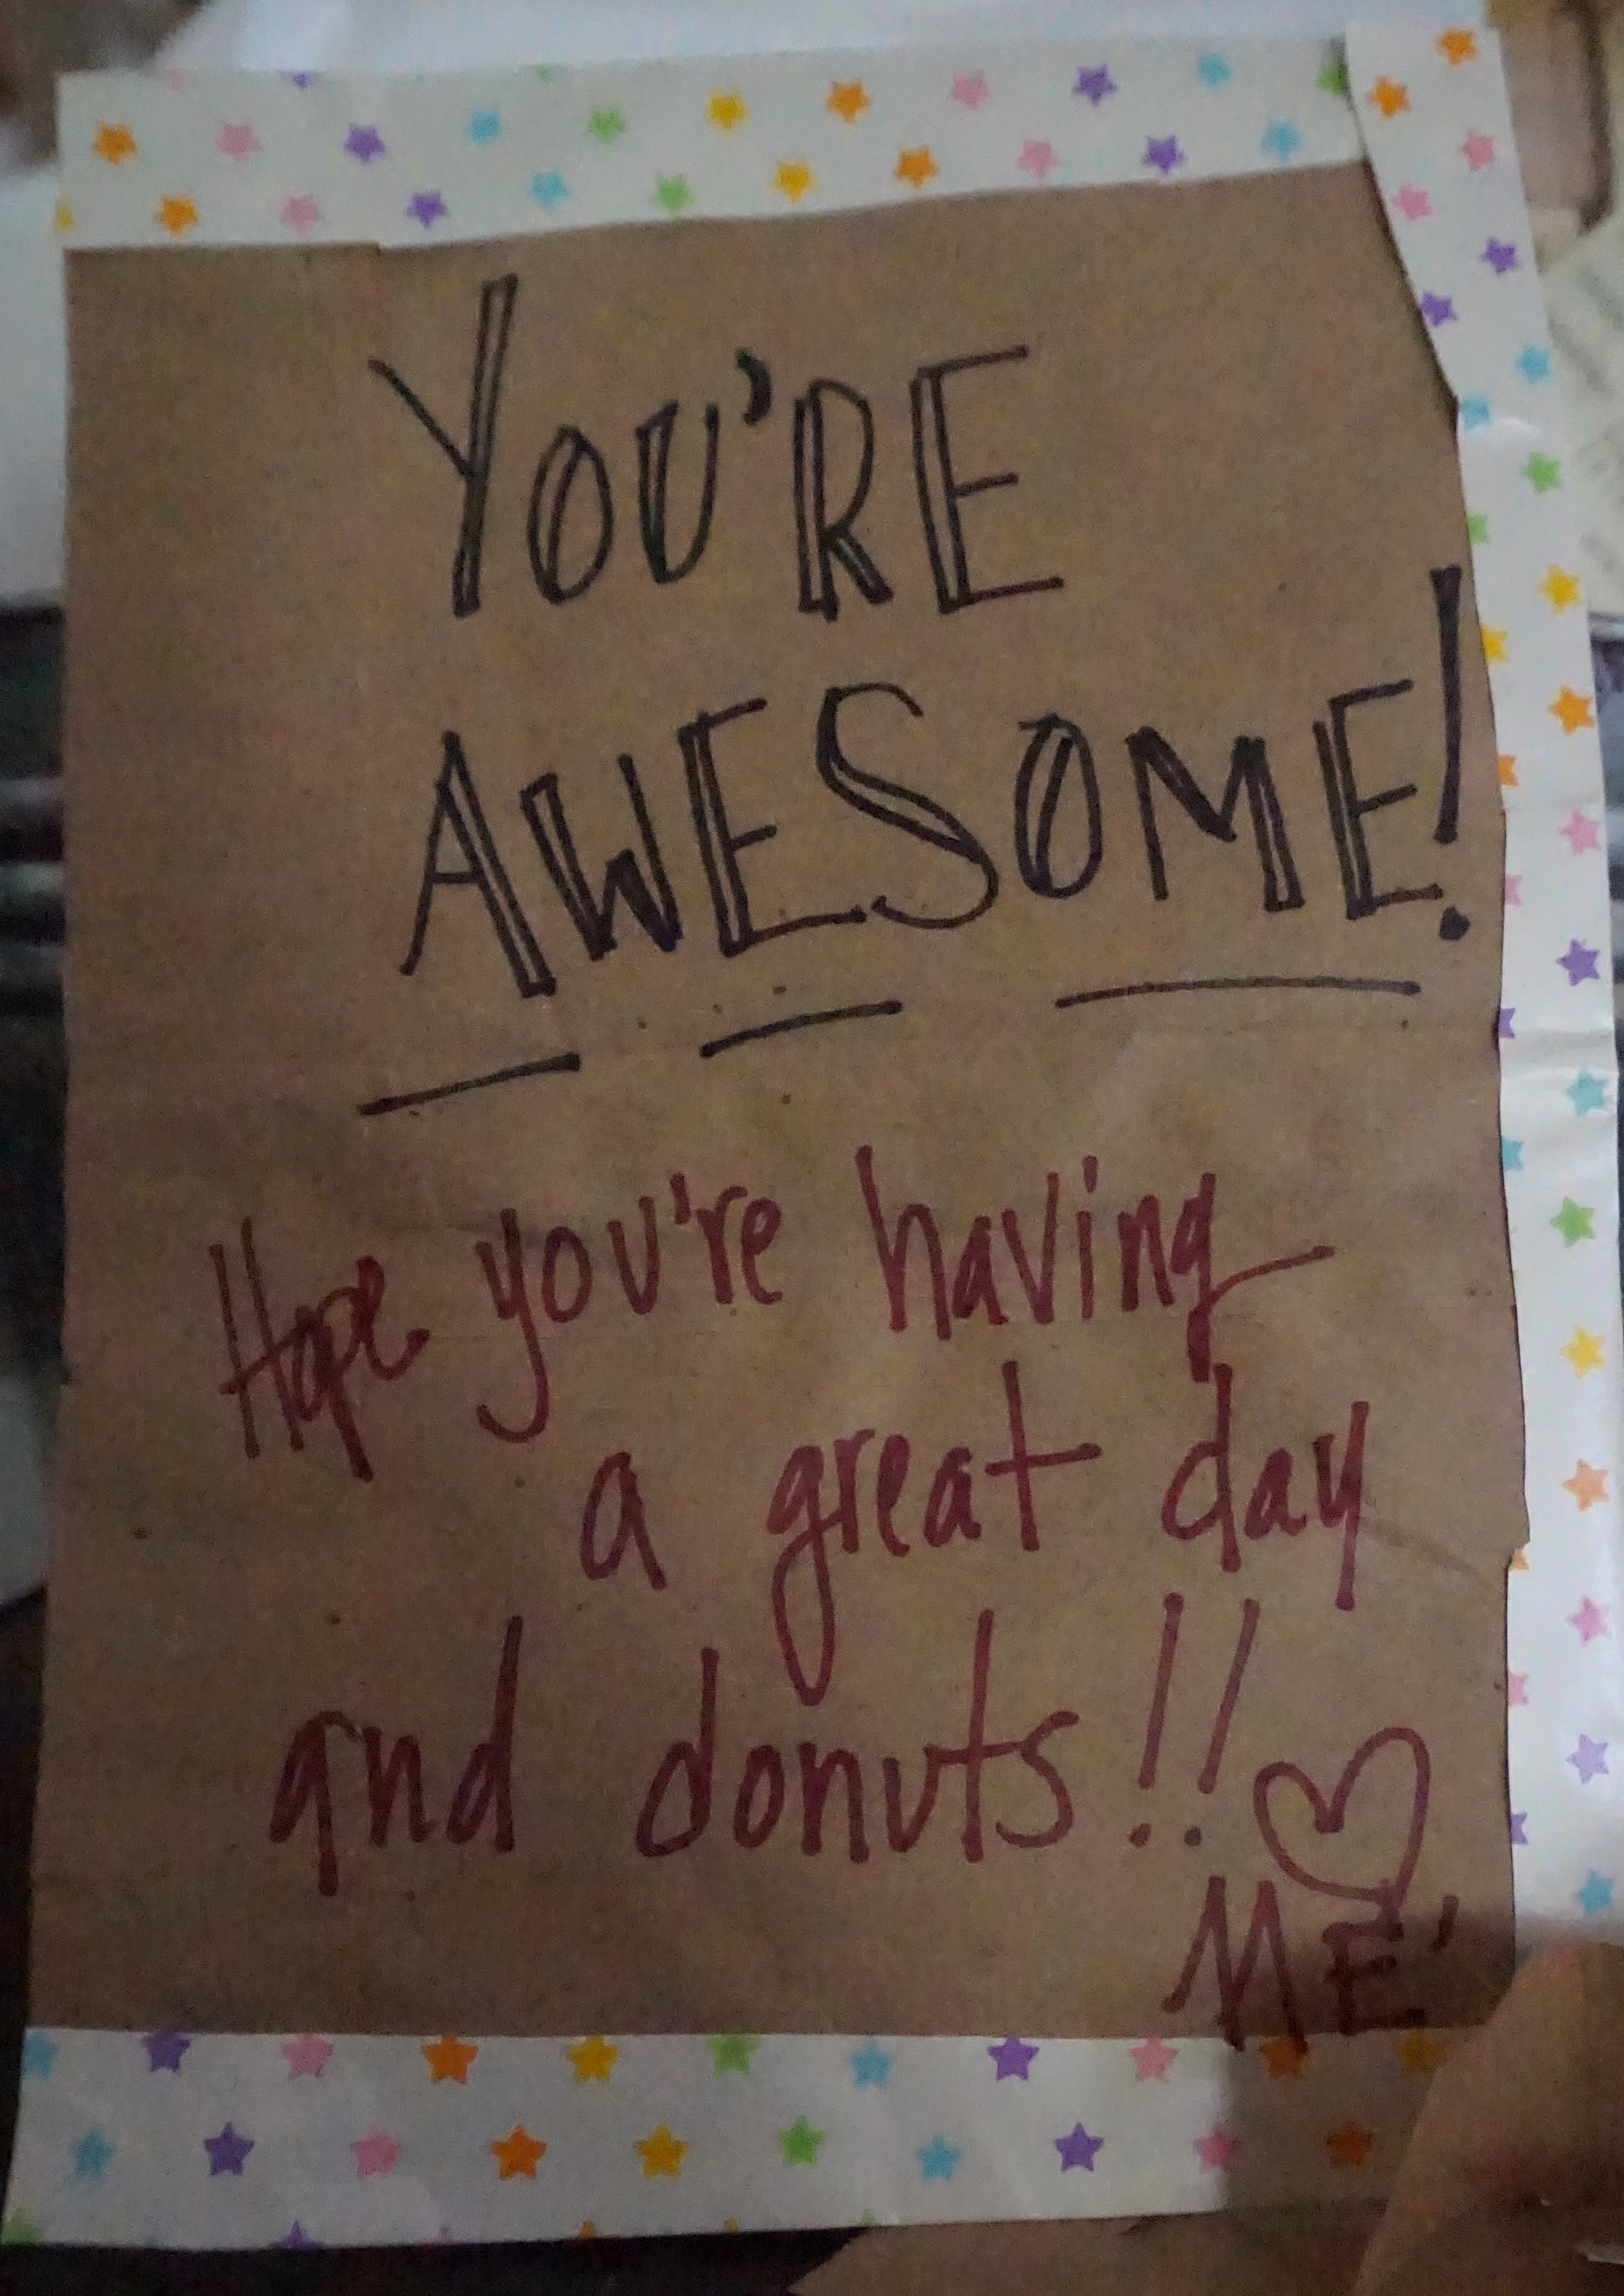 YOU'RE
AWESOME!
Hope you're having
a great day
and donuts!!
ME'